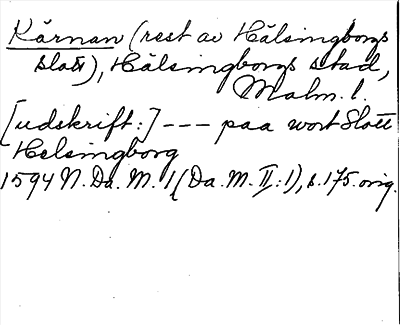 Kärnan (rest av Hälsingborgs
slott), Hälsingborgs stad,
Malm. l.
[udskrift:] --- paa wort Slott
Helsingborg
1594 N. Da. M. 1 (Da. M. II:1), s. 175. orig.